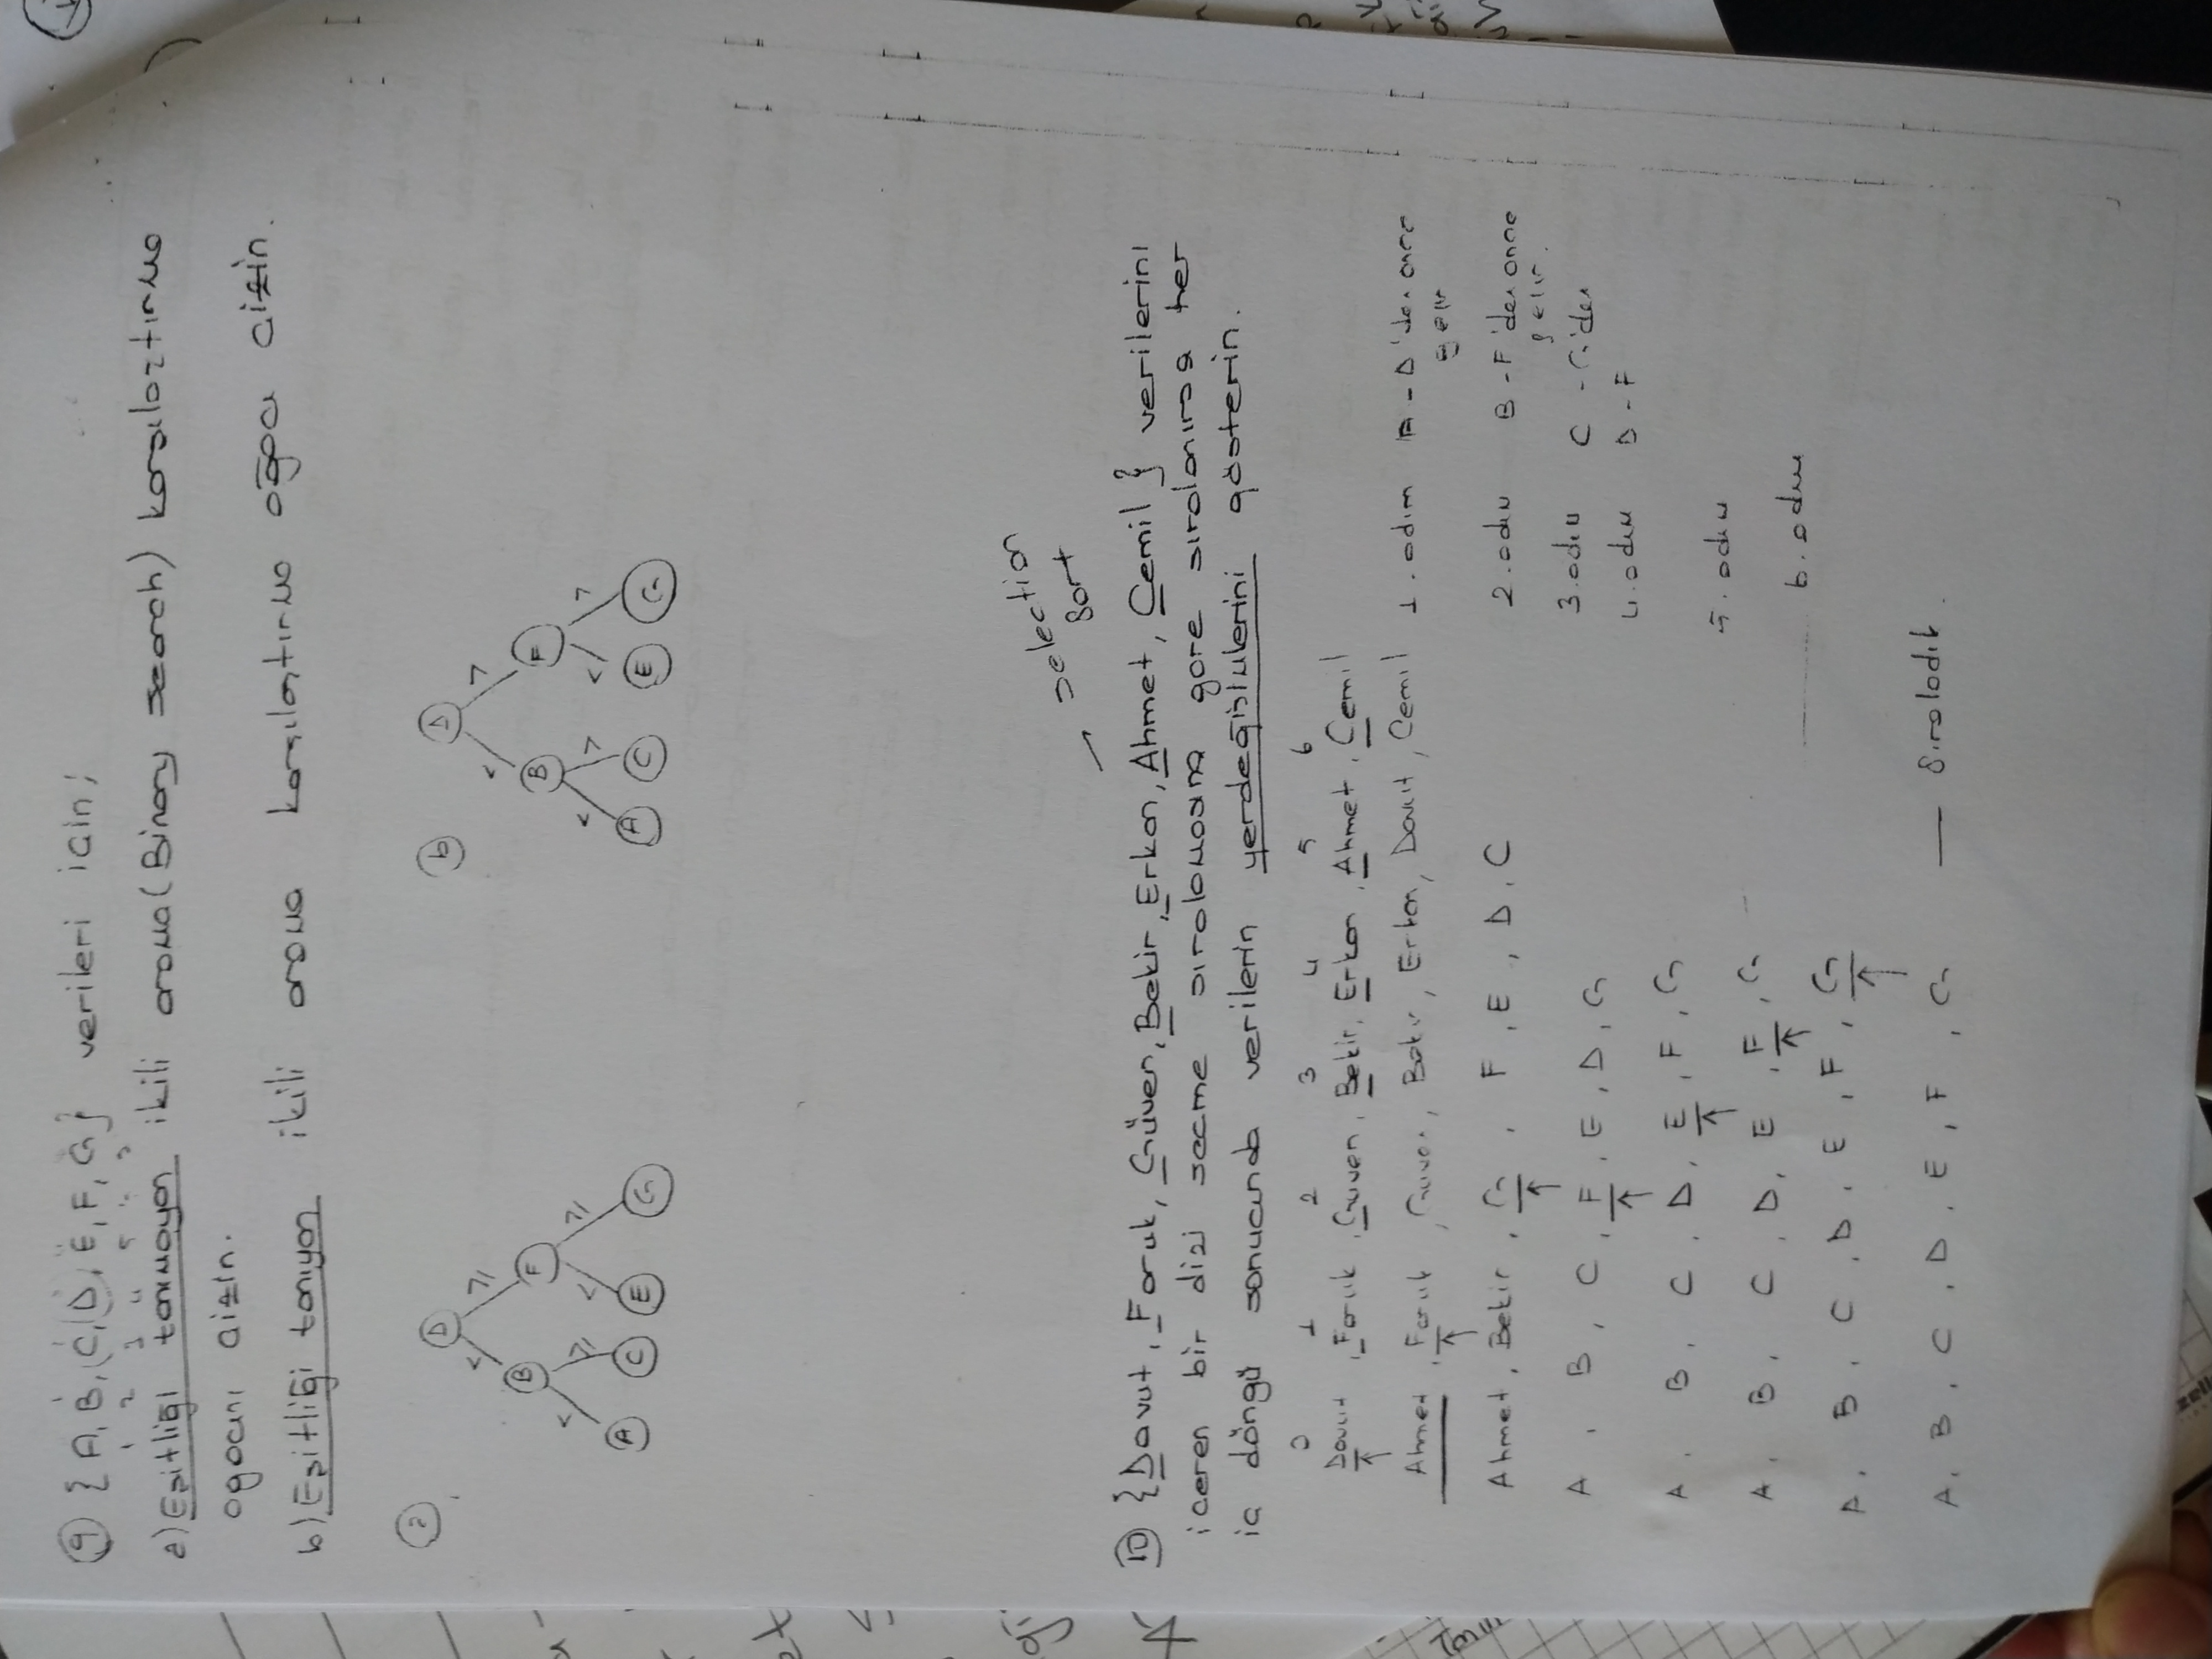 9 { A, B, C, D, E, F, G } verileri için;
1 2 3 4 5
a) Eşitliği tanımayan ikili arama (Binary search) karşılaştırma
ağacını çizin.
b) Eşitliği tanıyan ikili arama karşılaştırma ağacı çizin.
a
D
< ≥
B F
< ≥ < ≥
A C E G
b
D
< >
B F
< > < >
A C E G
→ selection
sort
10 { Davut, Faruk, Güven, Bekir, Erkan, Ahmet, Cemil } verilerini
içeren bir dizi seçme sıralamasına göre sıralanırsa her
iç döngü sonucunda verilerin yerdeğiştulerini gösterin.
0 1 2 3 4 5 6
Davut, Faruk, Güven, Bekir, Erkan, Ahmet, Cemil
Ahmet, Faruk, Güven, Bekir, Erkan, Davut, Cemil 1. adım A - D'den önce
gelir
Ahmet, Bekir, G, F, E, D, C 2. adım B - F'den önce
gelir.
A, B, C, F, E, D, G 3. adım C - G'den
4. adım D - F
A, B, C, D, E, F, G
5. adım
A, B, C, D, E, F, G
6. adım
A, B, C, D, E, F, G
A, B, C, D, E, F, G — Sıraladık.